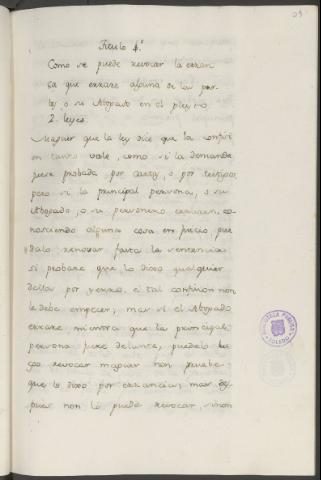 23
Titulo 4º.
Como se puede revocar la erran
za que errare alguna de las par
tes, o su Abogado en el pleyto
2. leyes.
Maguer que la ley dice que la confesi
on tanto vale, como si la demanda
fuere probada por carta, ó por testigos,
pero si la principal persona, o su
Abogado, o su personero erraren, co-
nosciendo alguna cosa en juicio pue
dalo revocar fasta la sentencia
si probare que lo dixo qualquier
dellos por yerro, é tal confesion non
le debe empecer, mas si el Abogado
errare mientra que la principal
persona fuere delante, puedelo lue
go revocar maguer non pruebe
que lo dixo por erranza, mas des
pues non lo puede revocar, sinon
BIBLIOTECA PUBLICA
TOLEDO